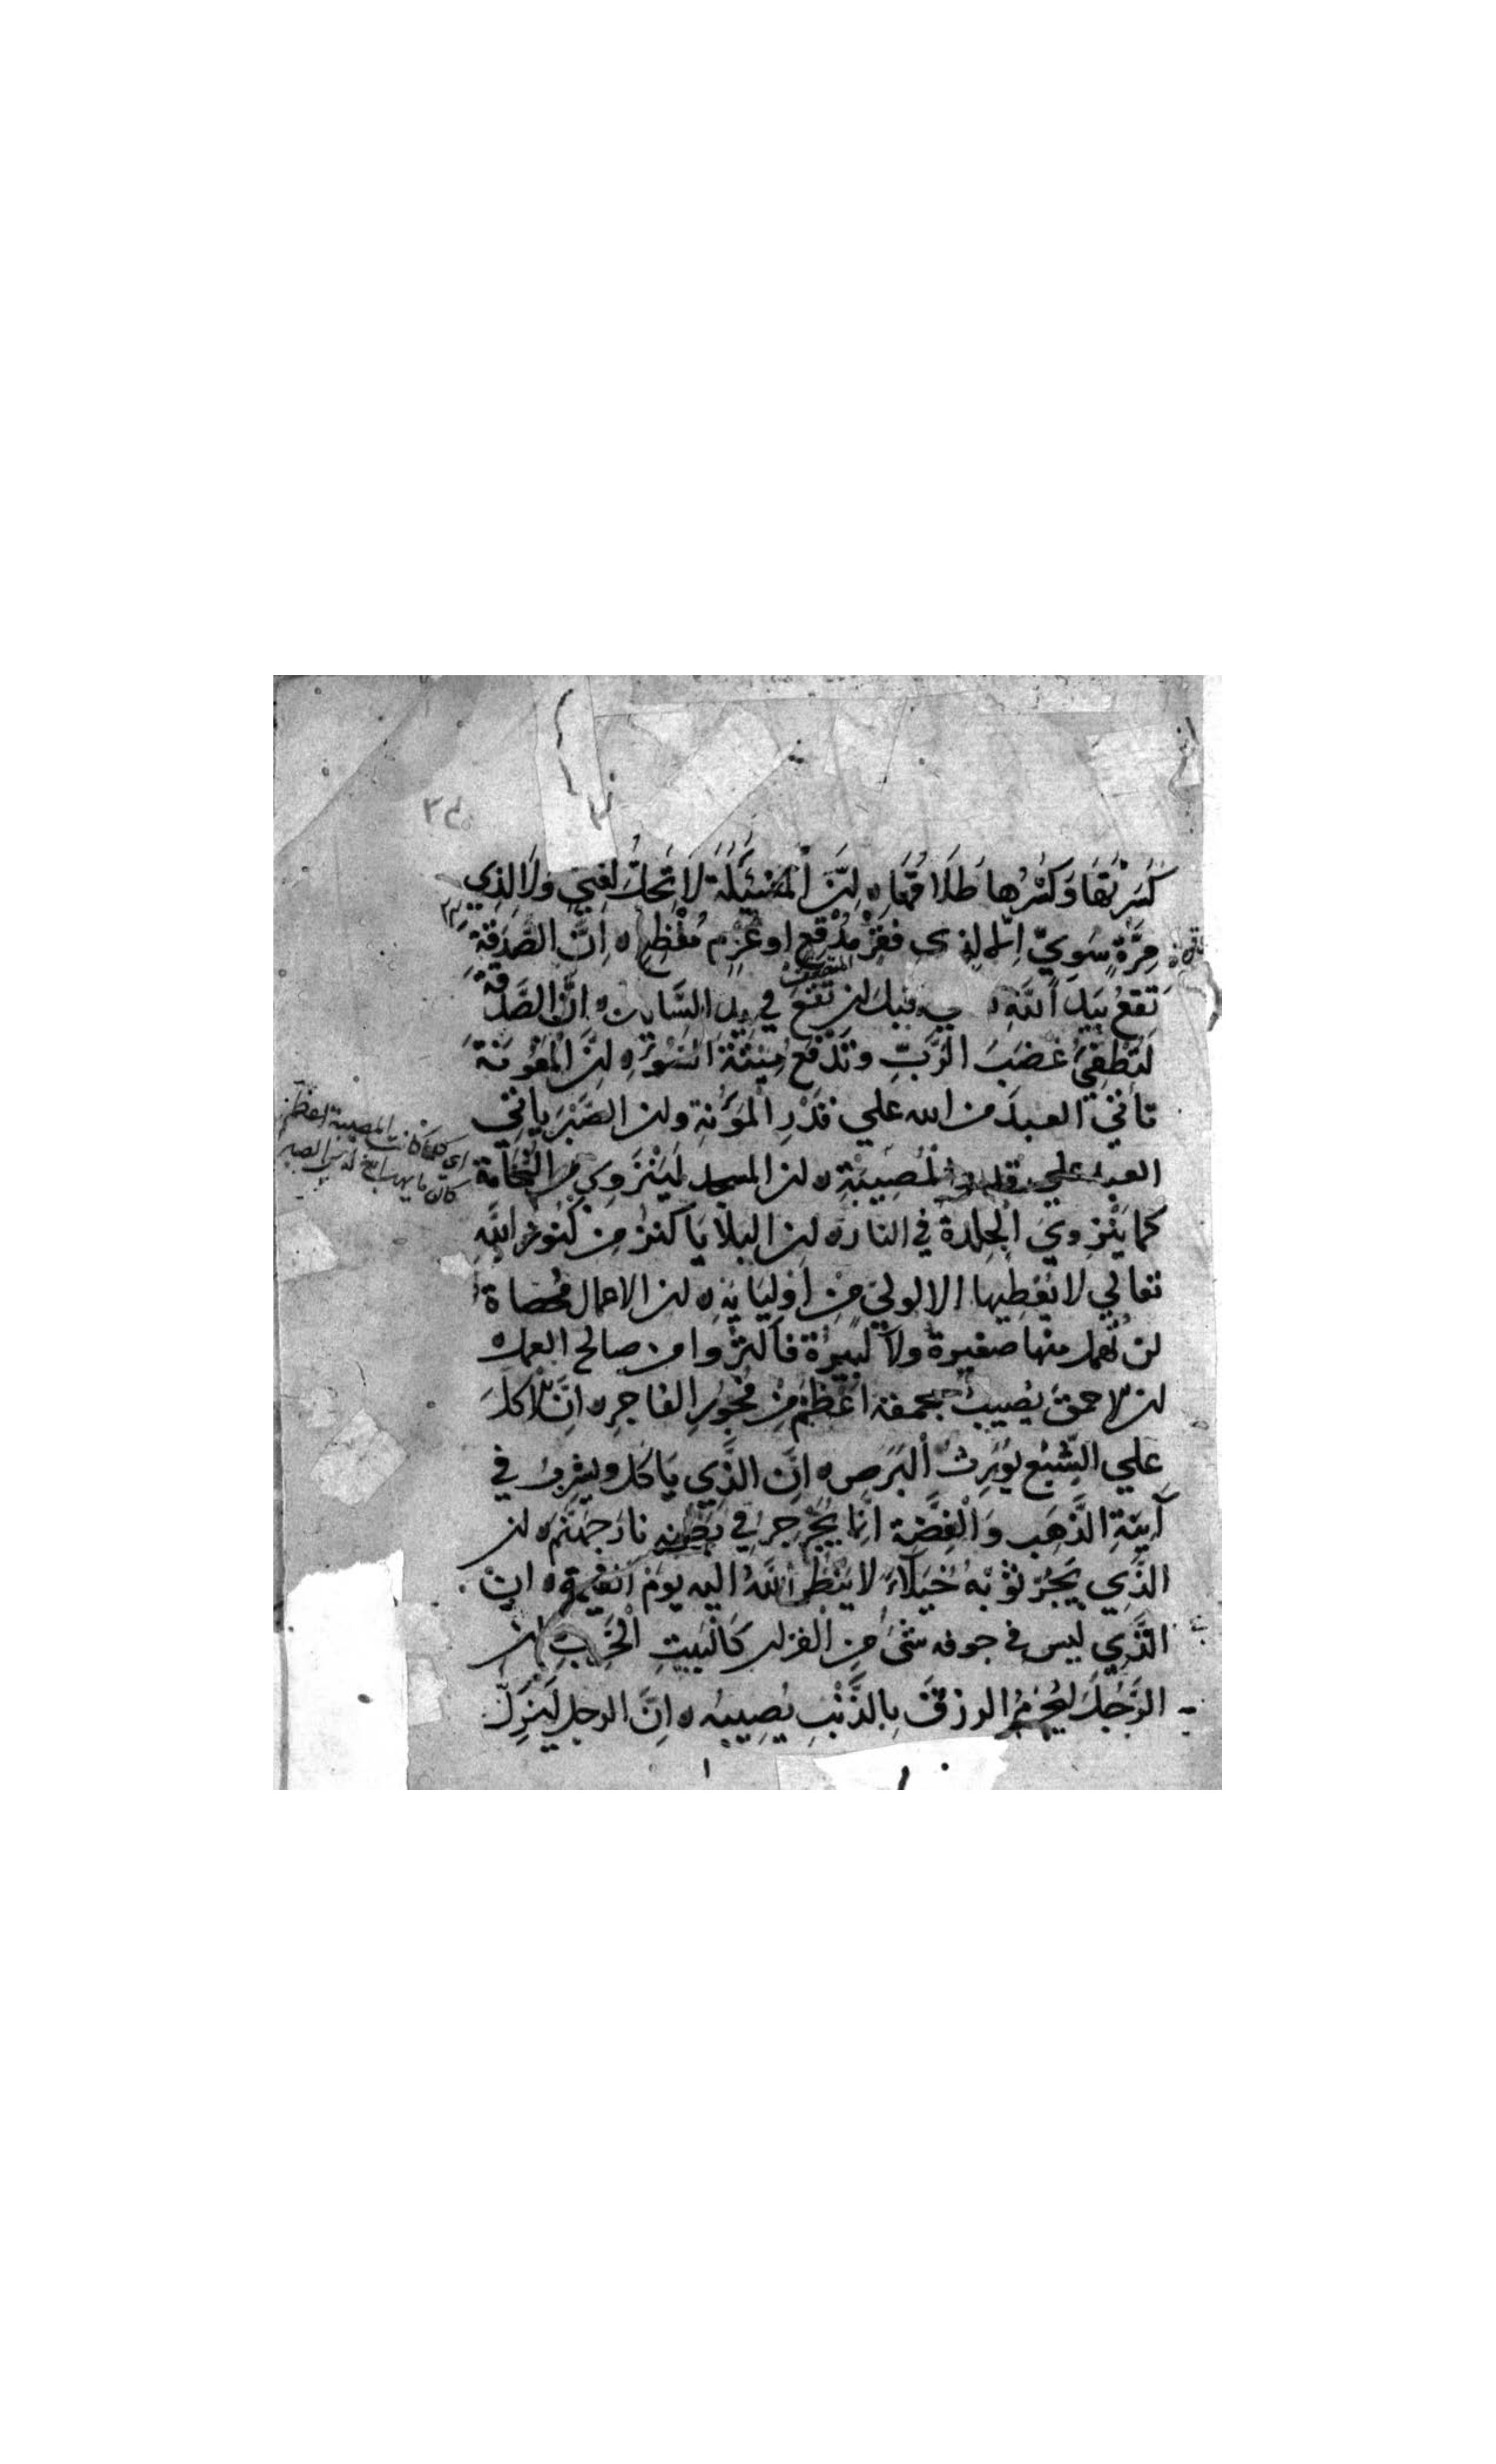 كَسَرْتَهَا وَكَسْرُها طَلَاقُهَا ه اِنَّ الْمَسْئَلَةَ لَا تَحِلُّ لِغَنِيٍّ وَلَا لِذِي
مِرَّةٍ سَوِيٍّ اِلّا لِذِي فَقْرٍ مُدْقِعٍ او غُرْمٍ مُفْظِعٍ ه اِنَّ الصَّدَقَةَ
تَقَعُ بِيَدِ اللَّهِ قبل ان تَقَعَ فِي يد السَّايل ه اِنَّ الصَّدَقَةَ
لَتُطْفِئُ غَضَبَ الرَّبِّ وتَدْفَعُ مِيْتَةَ السُّوْءِ ه اِنَّ الْمَعُوْنَةَ
تَأتي العبدَ من الله علي قَدْرِ الْمَؤُنَةِ وان الصَّبْرَ يَاتِي
العبد علي قدر الْمُصِيْبَةِ ه ان المسجد لَيَنْزَوِي من النُّخَامَةِ
كما يَنْزَوِي الْجِلْدَةُ فِي النار ه ان البلَايَا كنزٌ مِنْ كُنُوْزِ اللَّهِ
تعالي لا يُعْطِيها الا لوليٍّ مِنْ اَوْلِيَايِهِ ه ان الاعمال مُحْصَاةٌ
لن تُهمل منها صغيرة ولا كَبِيْرَةٌ فاكثِرُوا من صالح العمل
ان الاحمق يُصيبُ بحمقه اَعْظَمَ مِنْ فُجُوْرِ الفاجِرِ ه اِنَّ الْاَكْلَ
عَلي الشِّبَعِ يُوْرِثُ الْبَرَصَ ه اِنَّ الَّذِي يَاكل ويشربُ في
آنِيَةِ الذَّهَبِ وَالْفِضَّةِ اِنَّما يُجَرْجِرُ في بَطْنِهِ نارَ جَهَنَّمَ ه ان
الَّذِي يَجُرُّ ثَوْبَهُ خُيَلَاءَ لا يَنْظُرُ اللَّهُ اليه يومَ القيمةِ ه اِنَّ
الَّذِي ليس في جوفه شَئٌ مِنَ القرآن كَالْبَيْتِ الْخَرِبِ ه ان
الرَّجُلَ لَيُحْرَمُ الرزقَ بِالذَّنْبِ يُصِيبُه ه اِنَّ الرجل لَيَنْزِلُ
اى كلما كانت المصيبة اعظم